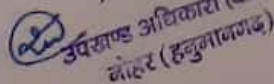 उपखण्ड अधिकारी (
नोहर (हनुमानगढ़)